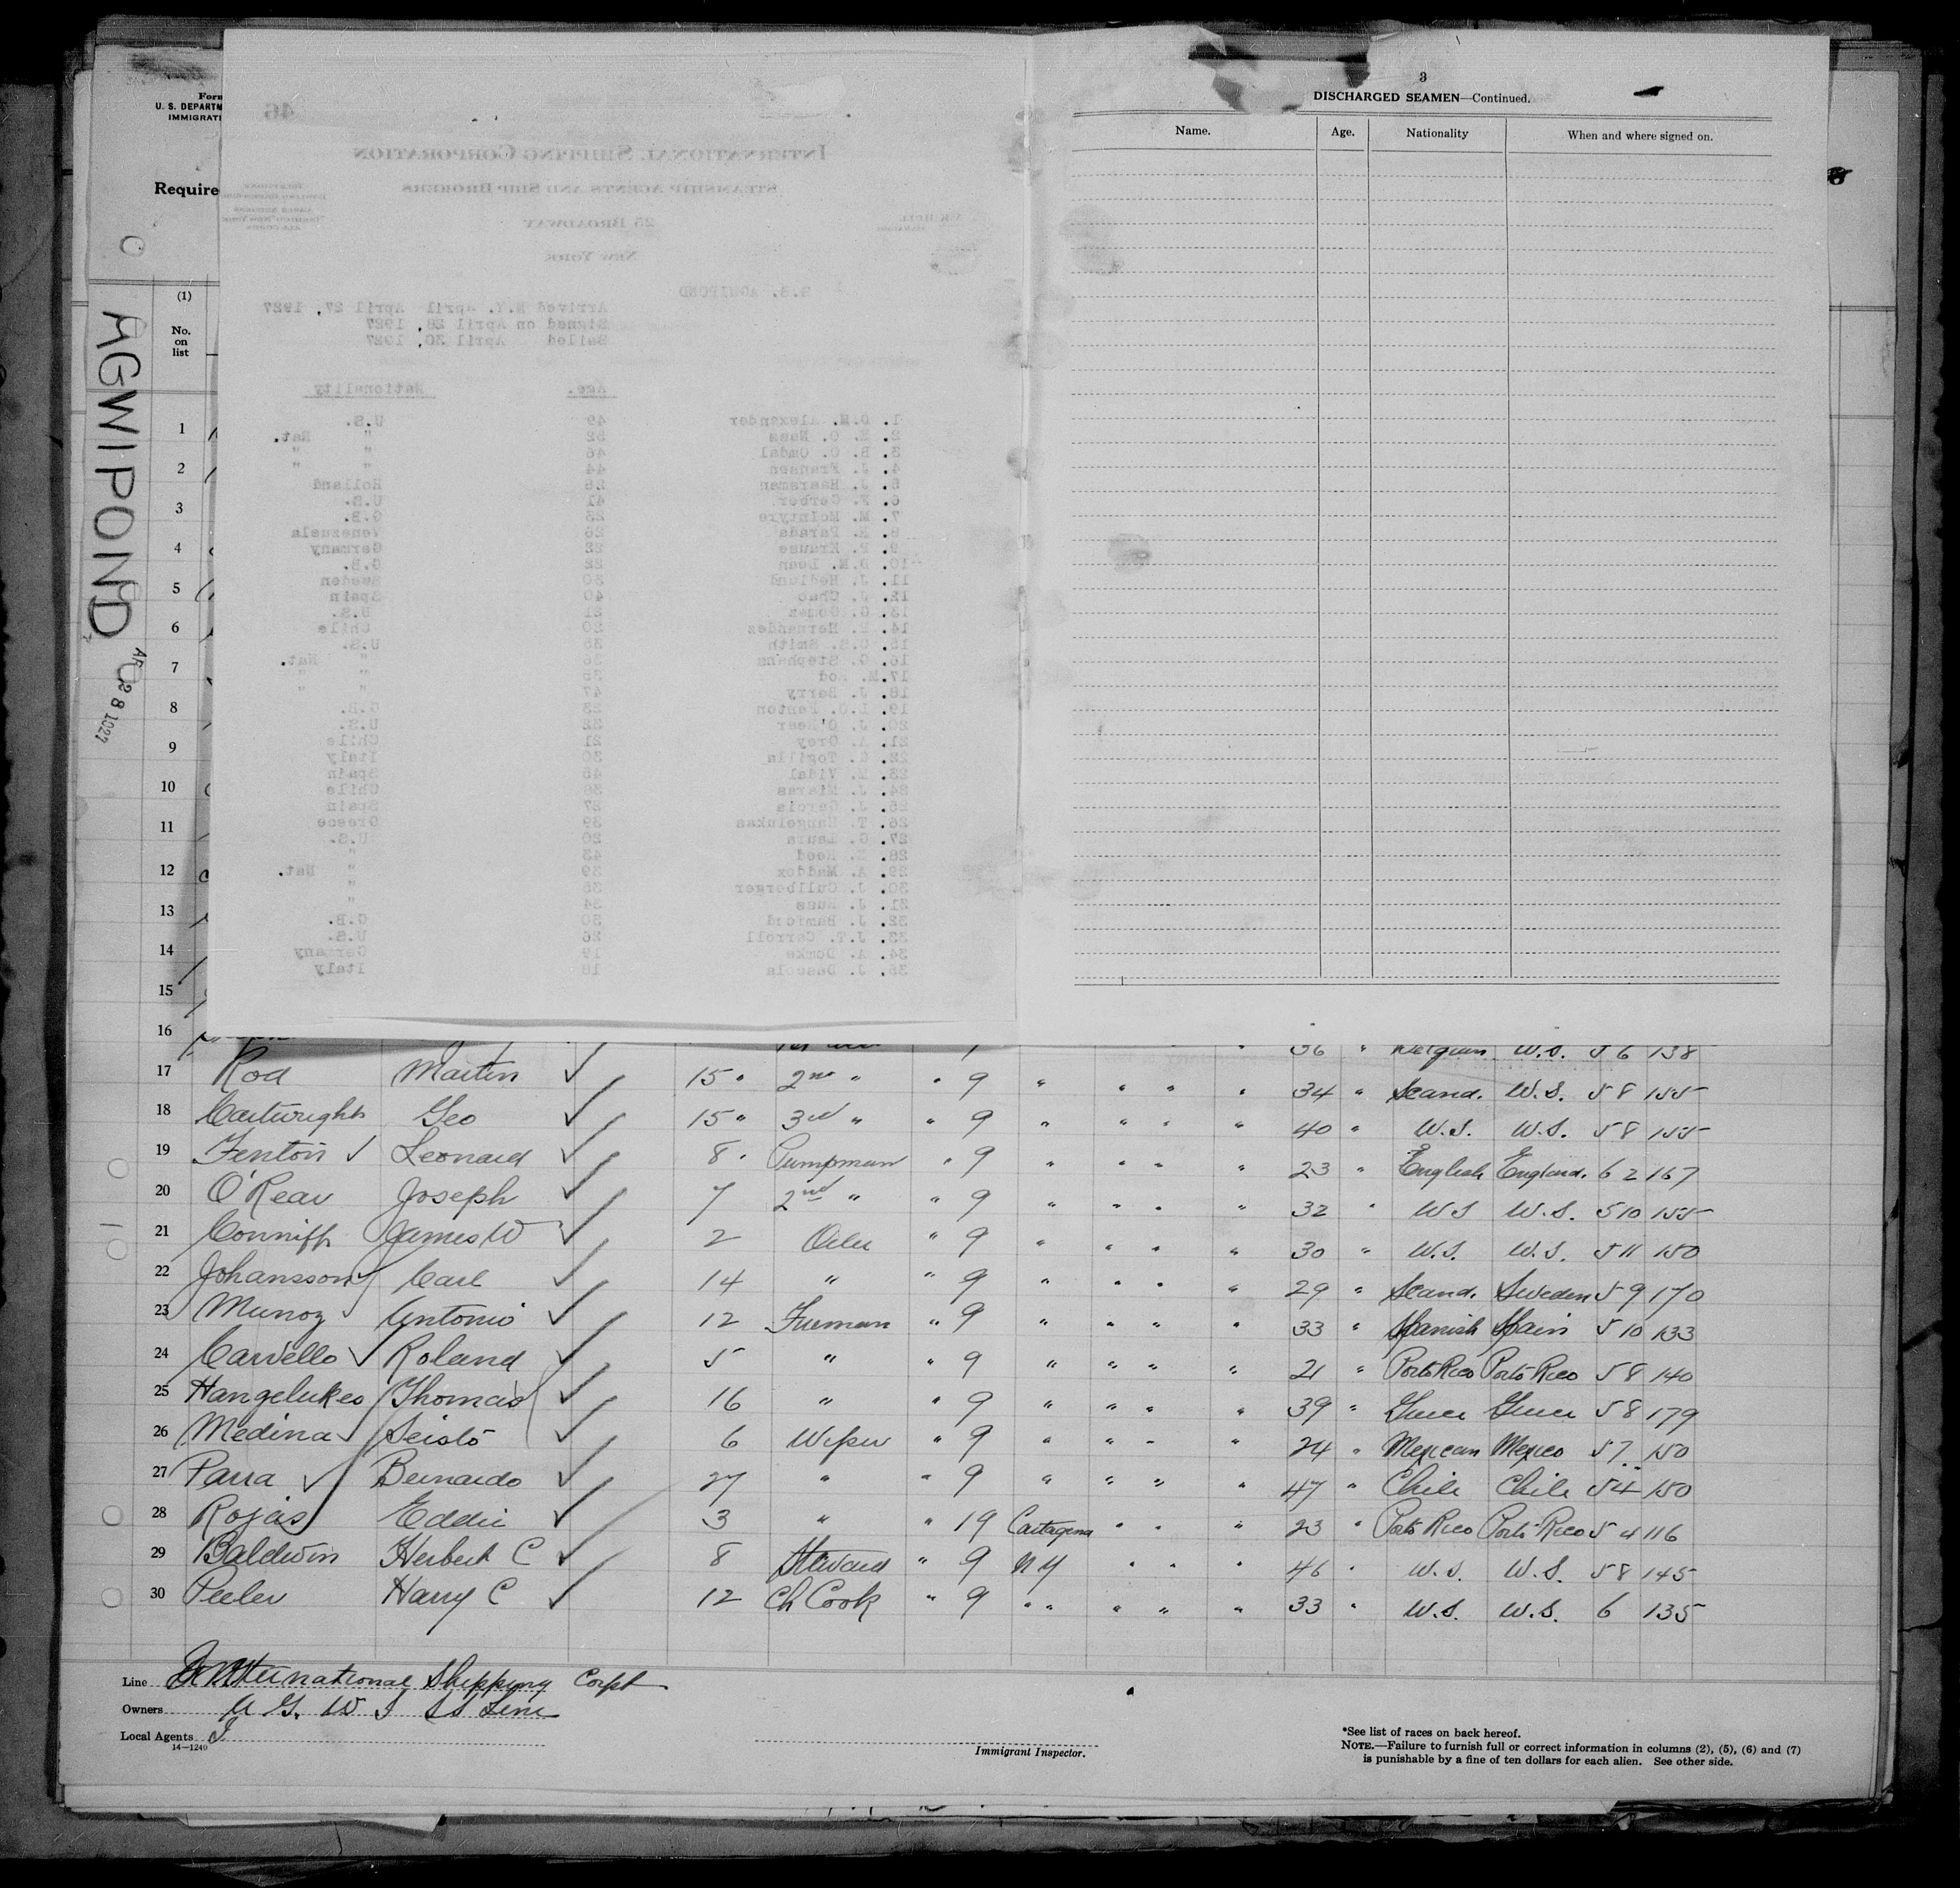 Form
U. S. DEPARTM
IMMIGRATI
Require
AGWIPOND
28 1927
(1)
No.
on
list
1
2
3
4
5
6
7
8
9
10
11
12
13
14
15
16
46
INTERNATIONAL SHIPPING CORPORATION
STEAMSHIP AGENTS AND SHIP BROKERS
25 BROADWAY
NEW YORK
S.S. AGWIPOND
Arrived N.Y. April April 27, 1927
Signed on April 28, 1927
Sailed April 30, 1927
Age. Nationality
1. D.M. Alexander 49 U.S.
2. O. Ness 52 " Nat.
3. B. O. Omdal 46 " "
4. J. Fransen 44 " "
5. J. Haarsman 26 Holland
6. Gerber 41 U.S.
7. M. McIntyre 23 G.B.
8. Parada 26 Venezuela
9. P. Krause 22 Germany
10. D.M. Lean 22 G.B.
11. J. Hedlund 30 Sweden
12. J. Chao 40 Spain
13. G. Gomez 21 U.S.
14. Hernandez 20 Chile
15. C.S. Smith 35 U.S.
16. G. Stephens 36 " Nat.
17. M. Rod 35 " "
18. J. Berry 47 " "
19. L.O. Fenton 23 G.B.
20. J. O'Rear 32 U.S.
21. A. Orey 21 Chile
22. Togilia 30 Italy
23. Vidal 45 Spain
24. J. Mieras 36 Chile
25. J. Garcia 27 Spain
26. T. Hangelukas 39 Greece
27. G. Laura 20 U.S.
28. Reed 43 "
29. A. Maddox 39 " Nat.
30. J. Cullberger 36 "
31. J. 34 "
32. J. Bamford 50 G.B.
33. J.T. Carroll 26 U.S.
34. A. Domke 19 Germany
35. J. Dascola 18 Italy
3
DISCHARGED SEAMEN—Continued.
Name. Age. Nationality When and where signed on.
36 " Belgium W.S. 5 6 138
17 Rod Martin 15 " 2nd " " 9 " " " " 34 " Scand. W.S. 5 8 155
18 Cartwright Geo 15 " 3rd " " 9 " " " " 40 " W.S. W.S. 5 8 155
19 Fenton Leonard 8 " Pumpman " 9 " " " " 23 " English England. 6 2 167
20 O'Rear Joseph 7 2nd " " 9 " " " " 32 " W.S W.S. 5 10 155
21 Conniff James W 2 Oiler " 9 " " " " 30 " W.S. W.S. 5 11 150
22 Johansson Carl 14 " " 9 " " " " 29 " Scand. Sweden 5 9 170
23 Munoz Antonio 12 Fireman " 9 " " " " 33 " Spanish Spain 5 10 133
24 Carvello Roland 5 " " 9 " " " " 21 " Porto Rico Porto Rico 5 8 140
25 Hangelukeo Thomas 16 " " 9 " " " " 39 " Greece Greece 5 8 179
26 Medina Seisto 6 Wiper " 9 " " " " 24 " Mexican Mexico 5 7 150
27 Parra Bernardo 27 " " 9 " " " " 47 " Chile Chile 5 4 150
28 Rojas Eddie 3 " " 19 Cartagena " " " 23 " Porto Rico Porto Rico 5 4 116
29 Baldwin Herbert C 8 Steward " 9 NY " " " 46 " W.S. W.S. 5 8 145
30 Peeler Harry C 12 Ch Cook " 9 " " " " " 33 " W.S. W.S. 6 135
Line International Shipping Corpt
Owners A G. W I SS Line
Local Agents
14—1240
Immigrant Inspector.
*See list of races on back hereof.
NOTE.—Failure to furnish full or correct information in columns (2), (5), (6) and (7)
is punishable by a fine of ten dollars for each alien. See other side.